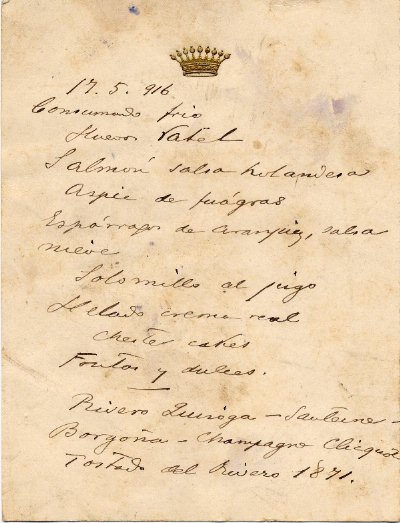 17. 5. 916.
Consumado frio
Huevos Vatel
Salmón salsa holandesa
Aspic de fuágras
Espárragos de Aranjuez, salsa
nieve
Solomillo al jugo
Helado crema real
Chester cakes
Frutas y dulces.
Rivero Quiroga - Sauterne -
Borgoña - Champagne Clicquot
Tostado del Rivero 1871.